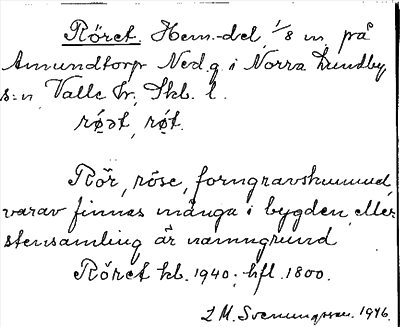 Röret. Hem.-del, 1/8 m, på
Amundtorp Ned.g. i Norra Lundby
s:n, Valle hr, Skb. l.
röət, röt.
Rör, röse, forngravskummel,
varav finnas många i bygden, eller
stensamling är namngrund
Röret kb. 1940; hfl. 1800.
L M. Svenungsson. 1946.